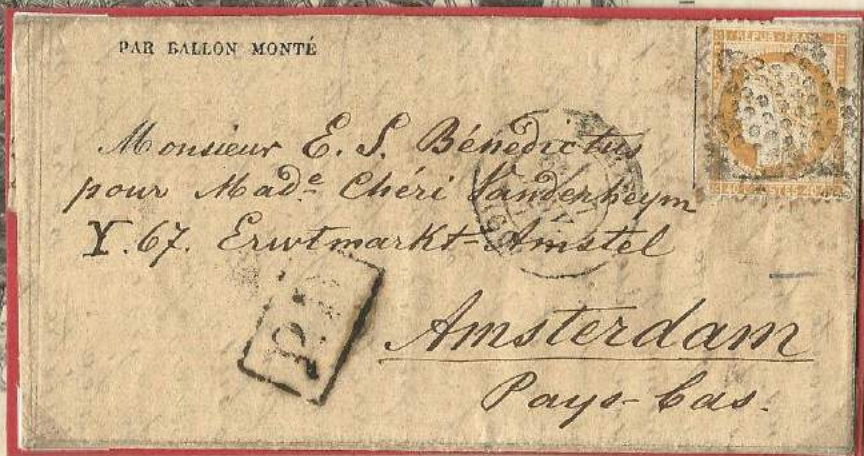 PAR BALLON MONTÉ
REPUB. FRANC
40 C. POSTES 40 C.
Monsieur E. S. Bénédictus
pour Made Chéri Vanderheym
Y. 67. Erwtmarkt-Amstel
P.D.
Amsterdam
Pays-bas.